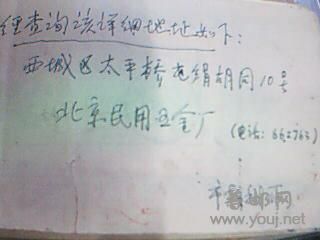 经查询该详细地址如下:
西城区太平桥花绢胡同10号
北京民用五金厂 (电话: 662763)
www.youj.net